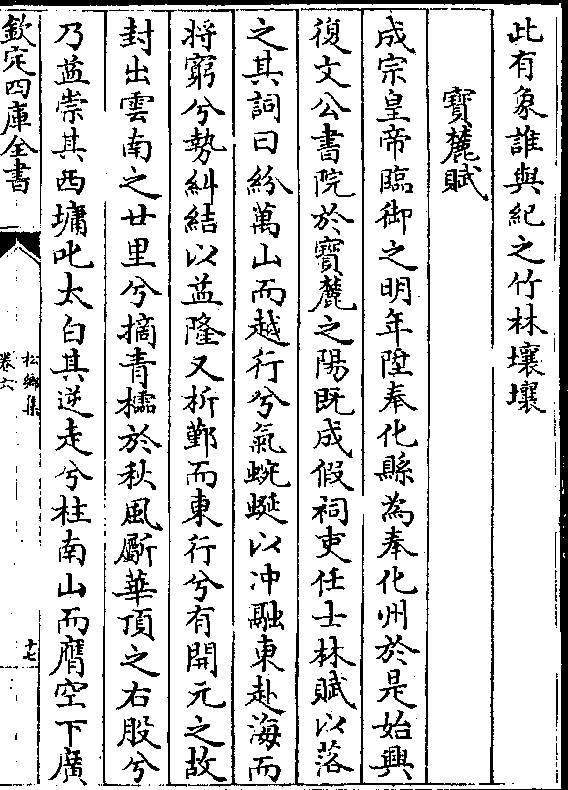 此有象誰與紀之竹林壤壤
寳麓賦
成宗皇帝臨御之明年陞奉化縣為奉化州於是始興
復文公書院於寳麓之陽既成假祠吏任士林賦以落
之其詞曰紛萬山而越行兮氣蜿蜒以冲融東赴海而
將窮兮勢糾結以益隆又折鄞而東行兮有開元之故
封出雲南之廿里兮摘青檽於秋風斸華頂之右股兮
乃益崇其西墉叱太白其逆走兮柱南山而膺空下廣
欽定四庫全書
松鄉集
卷六
十七